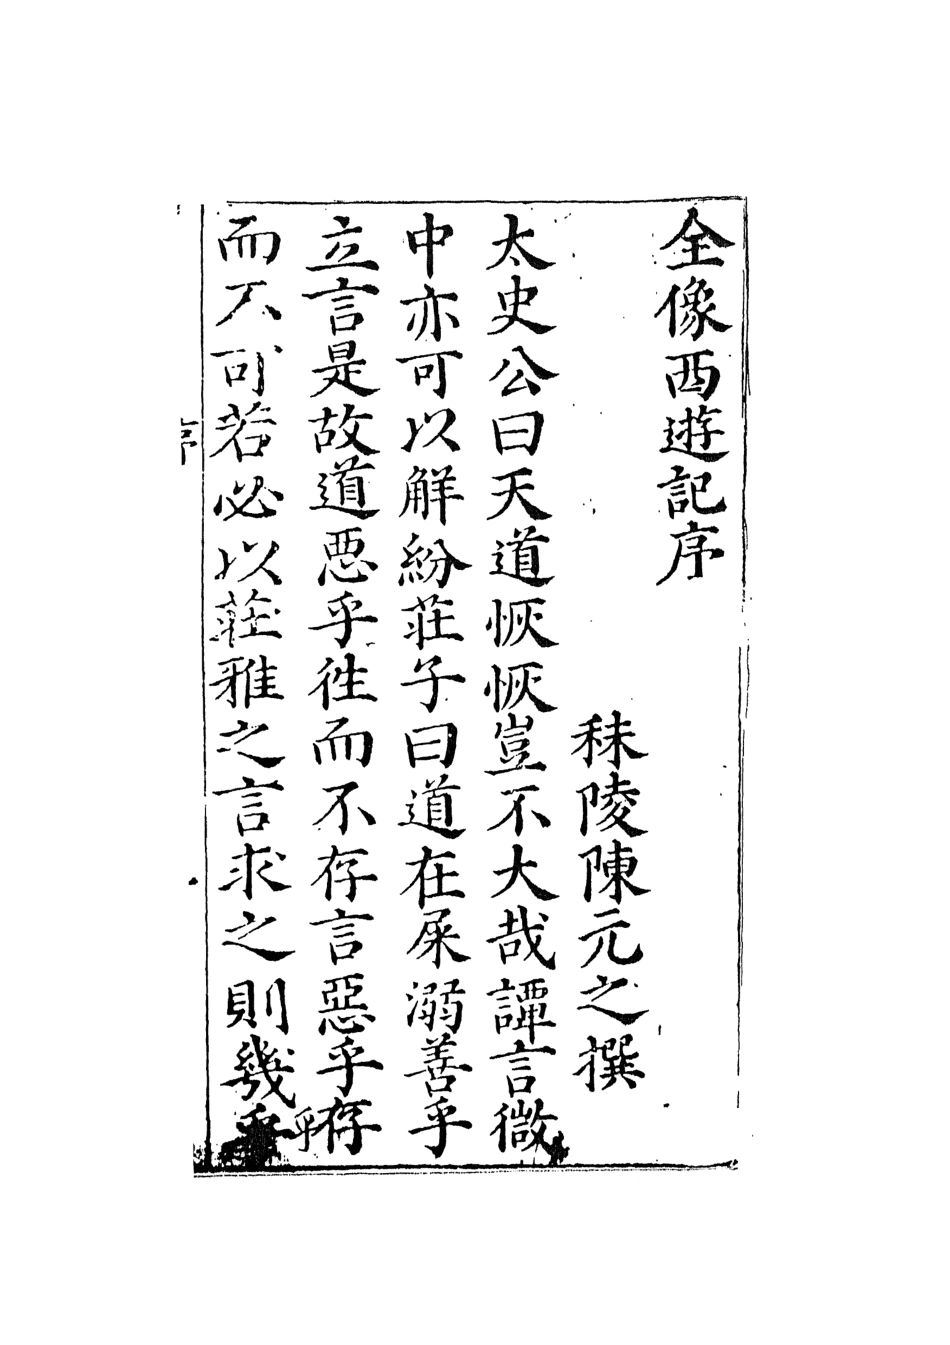 全像西遊記序
秣陵陳元之撰
太史公曰天道恢恢豈不大哉譚言微
中亦可以解紛莊子曰道在屎溺善乎
立言是故道惡乎往而不存言惡乎存
乎
而不可若必以莊雅之言求之則幾乎
序